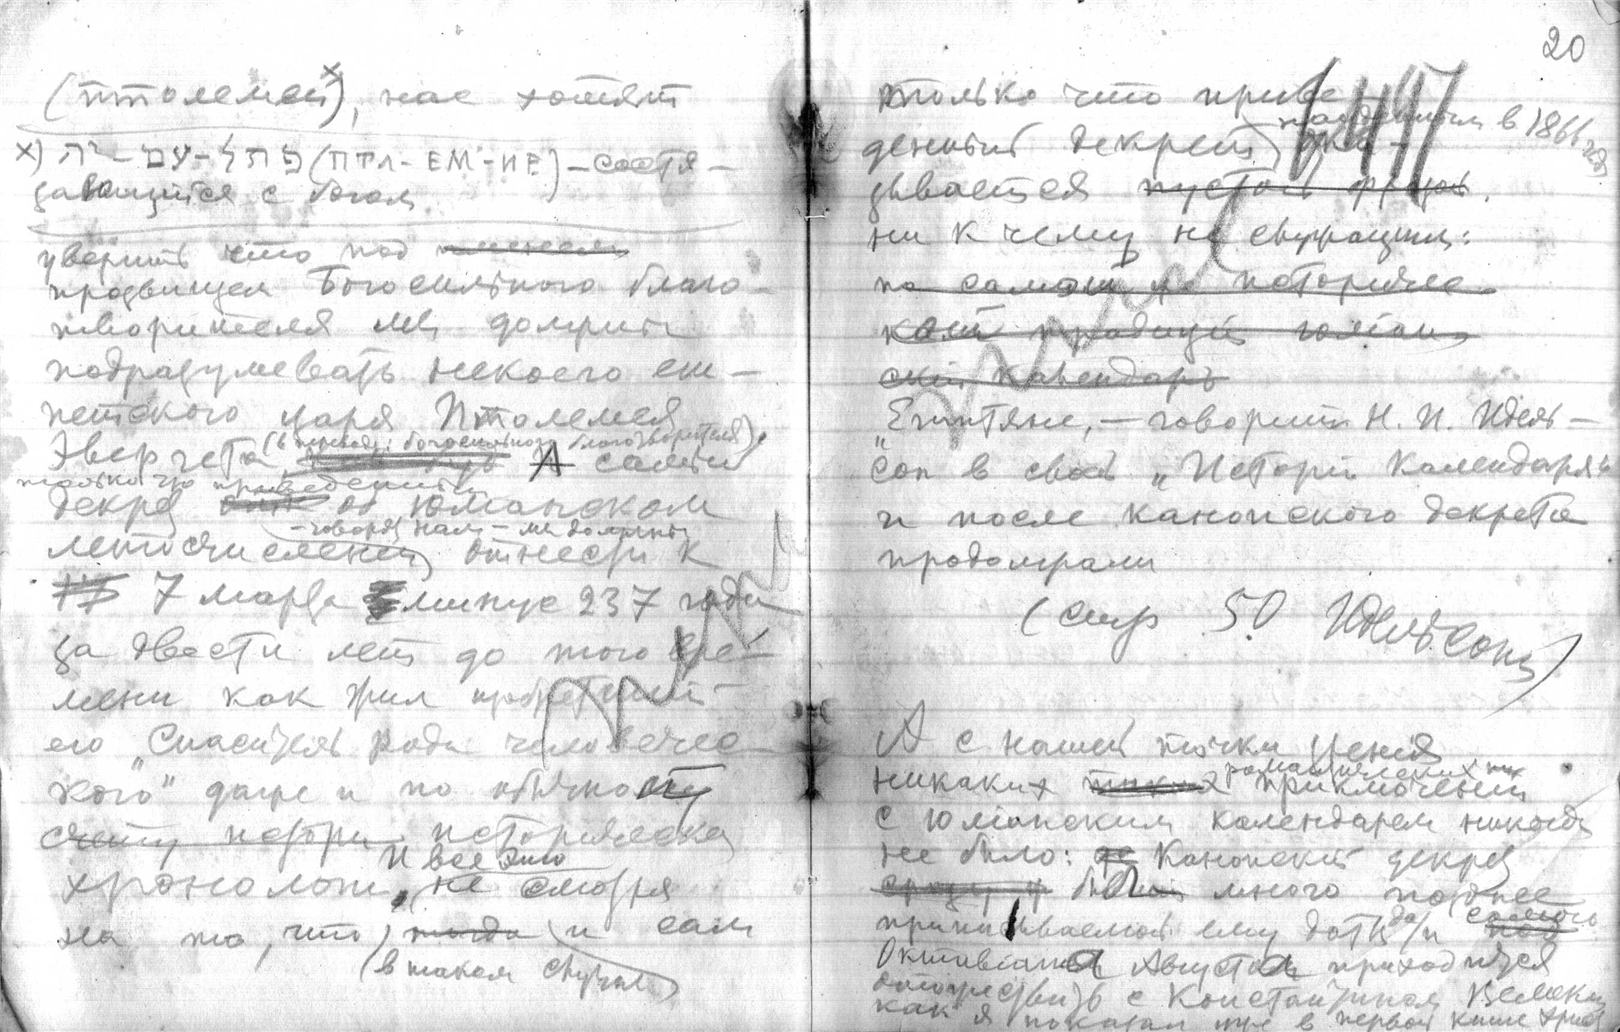 (птолемей x), нас хотят
x) פתל-עם-יה (ПТЛ-ЕМ-ИЕ) — состя-
зающийся с богом
уверить что под именем
прозвищем Богосильного благо-
творителя мы должны
подразумевать некоего еги-
петского царя Птолемея
(в перевод: богосильного благотворителя).
Эвергета А самый
только что приведенный
декрет об юлианском
— говорят нам — мы должны
летосчислении отнести к
7 марта минус 237 года
за двести лет до того вре-
мени как жил изобретший
его "Спаситель рода человечес-
кого" даже и по обычной
счету истори исторической
И все это
хронологии, не смотря
на то, что, тогда и сам
(в таком случае)
20
только что приве-
найденный в 1866 году
денный декрет ока-
зывается пустою фразой.
ни к чему не служащим:
по самой же историчес-
кой традиции юлиан-
ский календарь
"Египтяне, — говорит Н. И. Идель-
сон в своей „Истории Календаря"
и после канопского декрета
продолжали
(стр 50 Идельсона)
А с нашей точки зрения
романтических
никаких таких приключений
с юлианским календарем никогда
не было: Канопский декрет
был много позднее
приписываемой ему даты, да и самого
Октавиана Августа приходится
отождествить с Константином Великим
как я показал уже в первой книге Христ